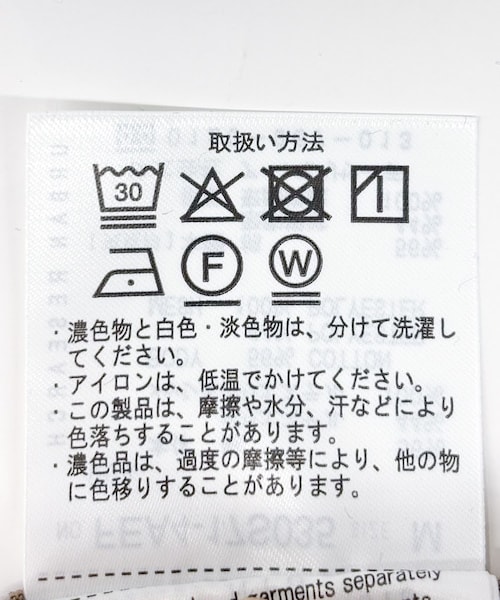 取扱い方法
30
F W
・濃色物と白色・淡色物は、分けて洗濯し
てください。
・アイロンは、低温でかけてください。
・この製品は、摩擦や水分、汗などにより
色落ちすることがあります。
・濃色品は、過度の摩擦等により、他の物
に色移りすることがあります。
garments separately